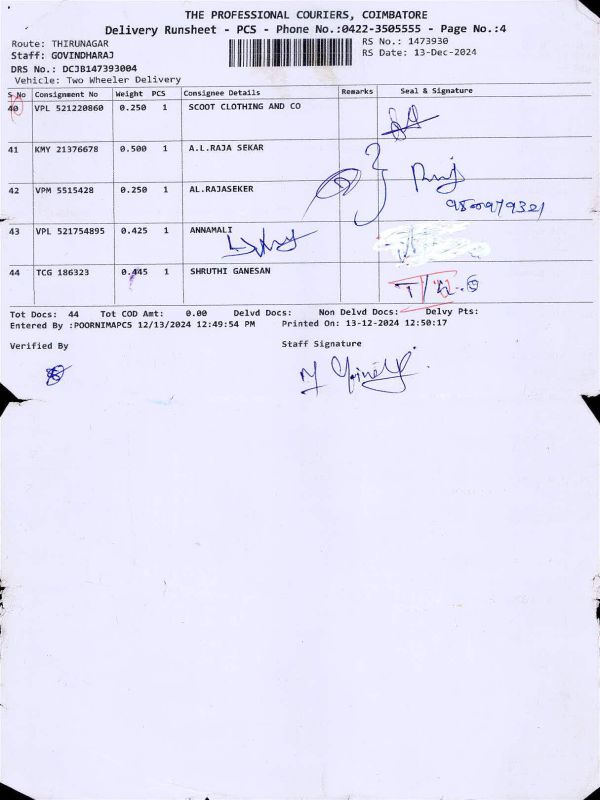 THE PROFESSIONAL COURIERS, COIMBATORE
Delivery Runsheet - PCS - Phone No.:0422-3505555 - Page No.:4
Route: THIRUNAGAR
RS No.: 1473930
Staff: GOVINDHARAJ
RS Date: 13-Dec-2024
DRS No.: DCJB147393004
Vehicle: Two Wheeler Delivery
S No Consignment No Weight PCS Consignee Details Remarks Seal & Signature
40 VPL 521220860 0.250 1 SCOOT CLOTHING AND CO
41 KMY 21376678 0.500 1 A.L.RAJA SEKAR
42 VPM 5515428 0.250 1 AL.RAJASEKER
43 VPL 521754895 0.425 1 ANNAMALI
44 TCG 186323 0.445 1 SHRUTHI GANESAN
Tot Docs: 44 Tot COD Amt: 0.00 Delvd Docs: Non Delvd Docs: Delvy Pts:
Entered By :POORNIMAPCS 12/13/2024 12:49:54 PM Printed On: 13-12-2024 12:50:17
Verified By
Staff Signature